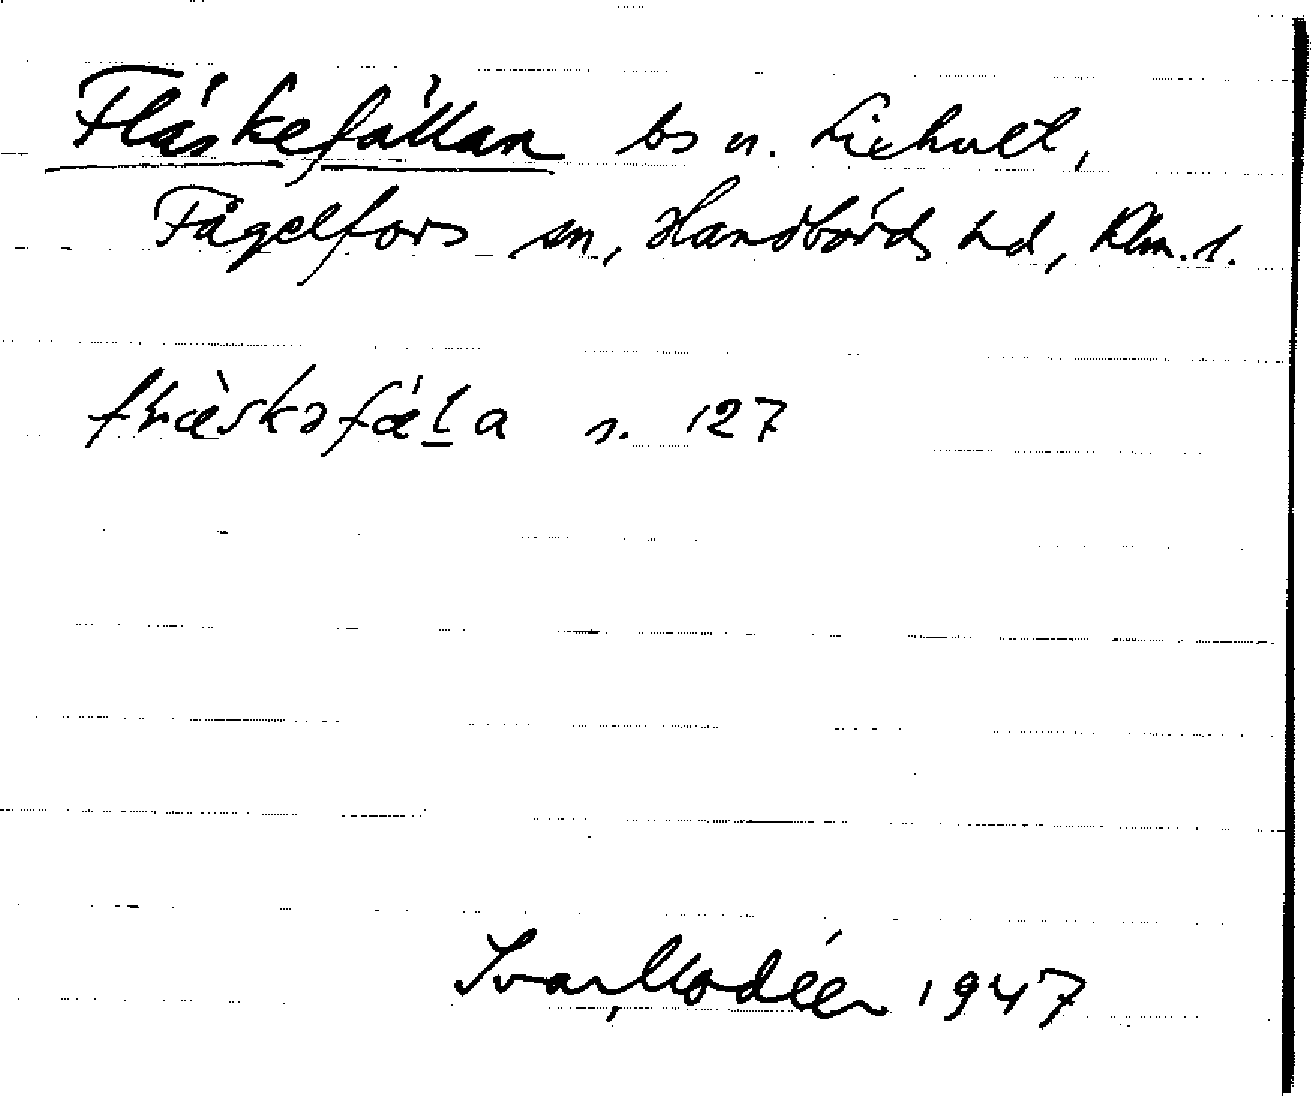 Fläskefällan bs u. Liehult,
Fågelfors sn, Handbörds hd, Klm. l.
s. 127
Ivar Modéer 1947